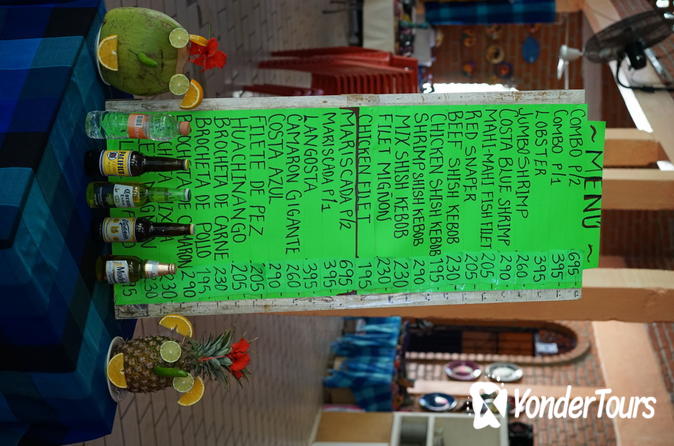 ~ MENU ~
COMBO P/2 695.-
COMBO P/1 395.-
LOBSTER 395.-
JUMBO SHRIMP 260.-
COSTA BLUE SHRIMP 290.-
MAHI-MAHI FISH FILET 205.-
RED SNAPER 205.-
BEEF SHISH KEBOB 230.-
CHICKEN SHISH KEBOB 195.-
SHRIMP SHISH KEBOB 290.-
MIX SHISH KEBOB 230.-
FILET MIGNON 230.-
CHICKEN FILET 195.-
MARISCADA P/2 695.-
MARISCADA P/1 395.-
LANGOSTA 395.-
CAMARON GIGANTE 260.-
COSTA AZUL 290.-
FILETE DE PEZ 205.-
HUACHINANGO 205.-
BROCHETA DE CARNE 230
BROCHETA DE POLLO 195
CAMARON 290
230
YonderTours